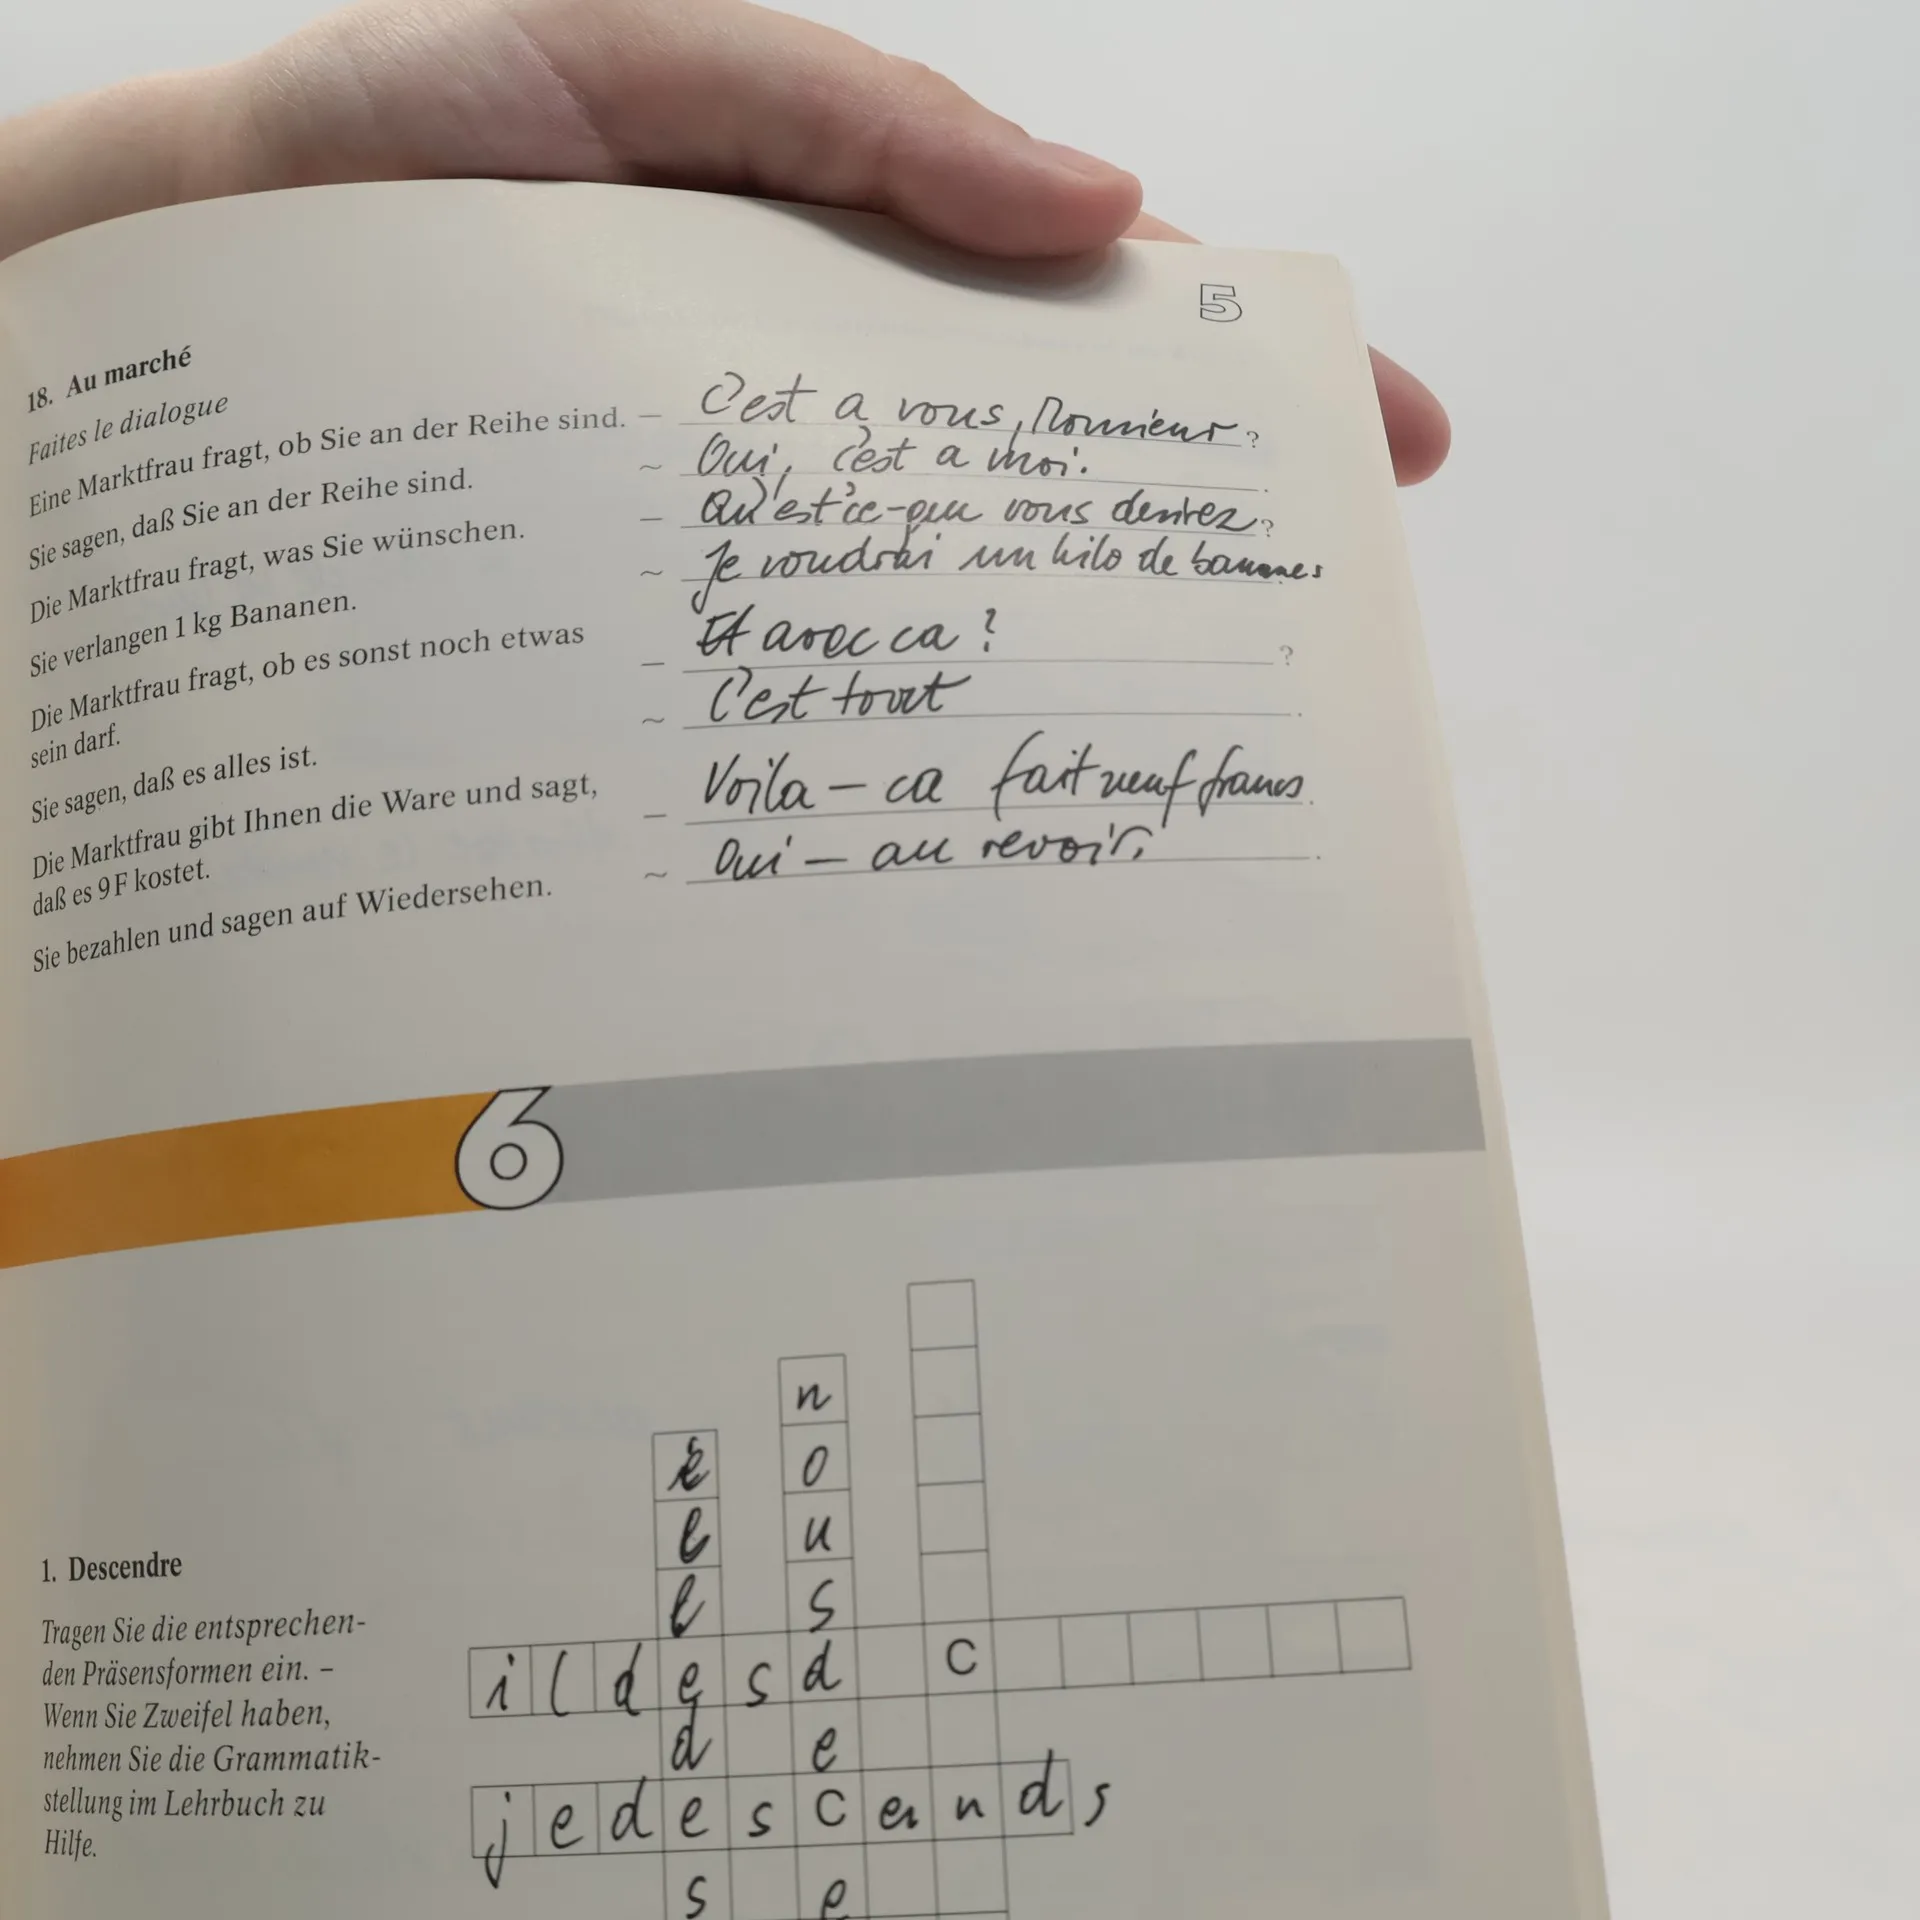 5
18. Au marché
Faites le dialogue
Eine Marktfrau fragt, ob Sie an der Reihe sind. – C'est a vous, Monsieur ?
Sie sagen, daß Sie an der Reihe sind. ~ Oui, c'est a moi. .
Die Marktfrau fragt, was Sie wünschen. – Qu'est'ce-que vous desirez ?
Sie verlangen 1 kg Bananen. ~ Je voudrai un kilo de bananes
Die Marktfrau fragt, ob es sonst noch etwas
sein darf. – Et avec ca ? ?
Sie sagen, daß es alles ist. ~ C'est tout .
Die Marktfrau gibt Ihnen die Ware und sagt,
daß es 9 F kostet. – Voila – ca fait neuf francs .
Sie bezahlen und sagen auf Wiedersehen. ~ Oui – au revoir. .
6
1. Descendre
Tragen Sie die entsprechen-
den Präsensformen ein. –
Wenn Sie Zweifel haben,
nehmen Sie die Grammatik-
stellung im Lehrbuch zu
Hilfe.
n
e o
l u
l s
i l d e s d c
d e
j e d e s c en n d s
s e